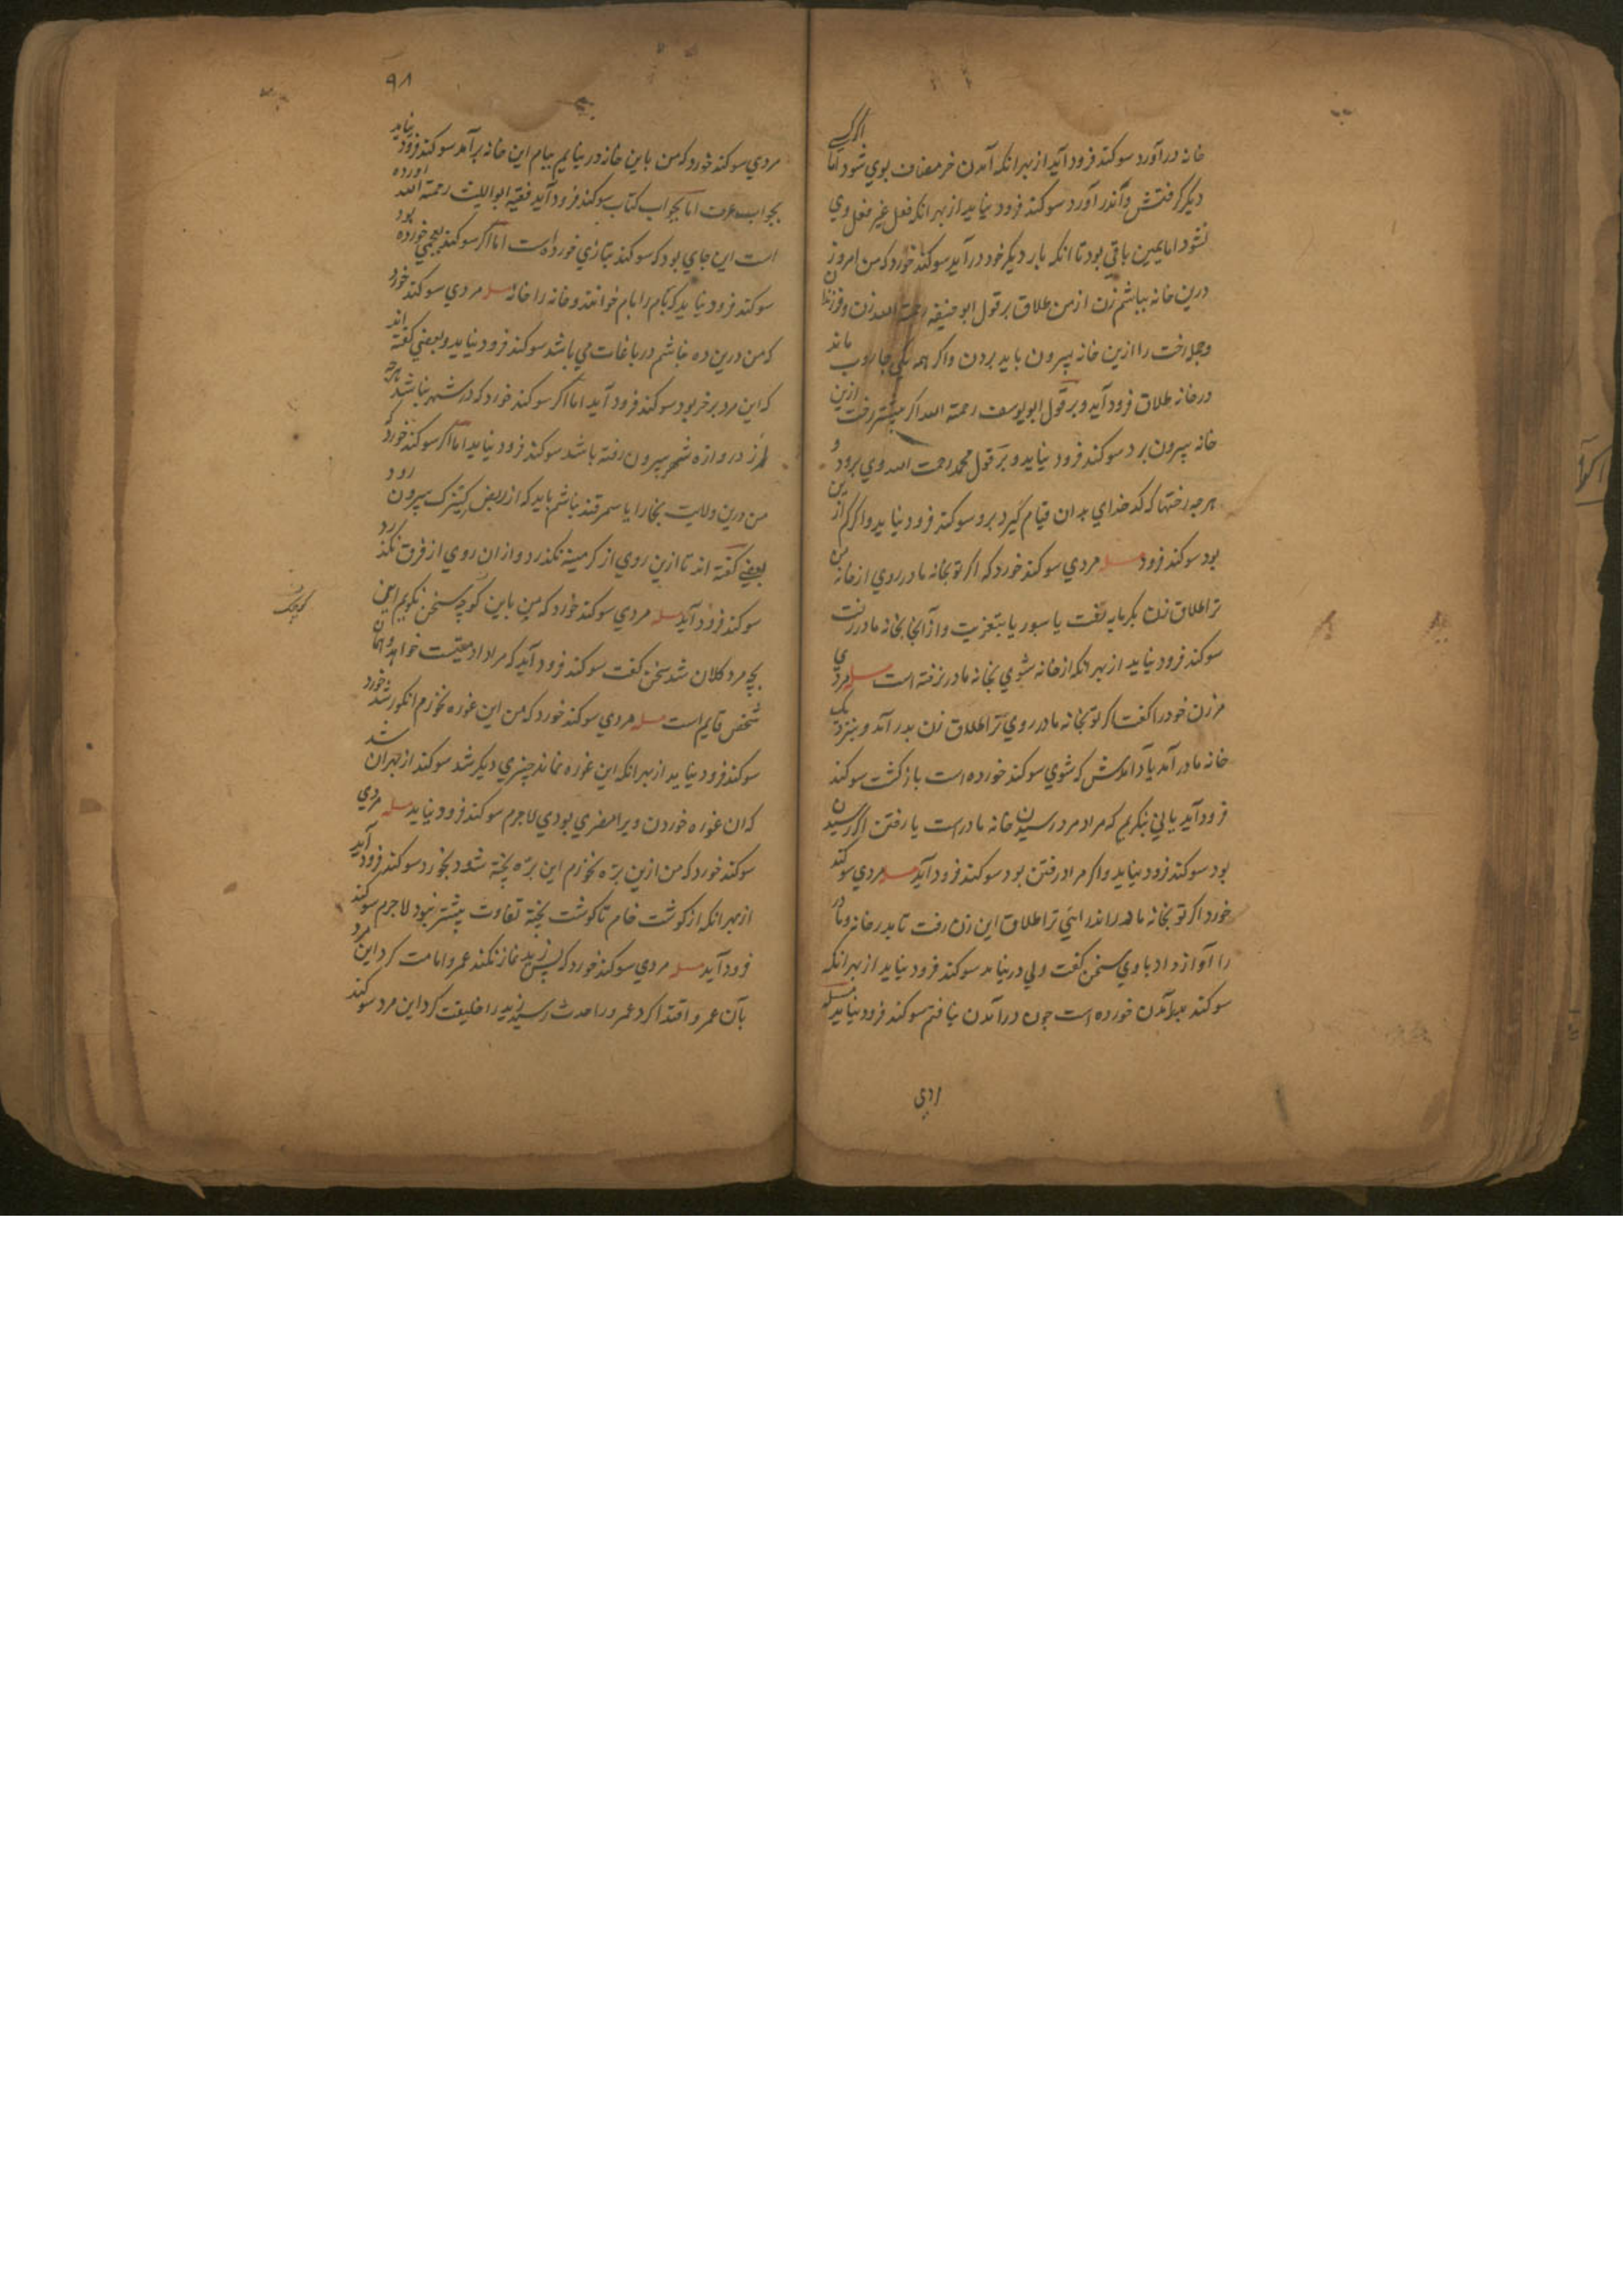 خانه در آورد سوکند فرود آید از بهر انکه آمدن خر مضاف بوی شود اما اکر کسی
دیکر کرفتش و اندر آورد سوکند فرود نیاید از بهر انکه فعل غیر فعل وی
نشود اما یمین باقی بود تا انکه بار دیکر خود در آید سوکند خورد که من امروز
درین خانه بباشم زن از من طلاق بر قول ابو حنیفه رحمة الله زن و فرزندان
و جل رخت را ازین خانه بیرون باید بردن و اکر همه یکی جاروب ماند
در خانه طلاق فرود آید و بر قول ابو یوسف رحمة الله اکر بیشتر رخت ازین
خانه بیرون برد سوکند فرود نیاید و بر قول محمد رحمت الله وی برود و
هرچه رختها که کدخدای بدان قیام کیرد برد سوکند فرود نیاید و اکر کم از این
بود سوکند فرود مسله مردی سوکند خورد که اکر تو بخانه مادر روی از خانه من
ترا طلاق زن بکرمابه رفت یا بسور یا بتعزیت و از آنجا بخانه مادر رفت
سوکند فرود نیاید از بهر انکه از خانه شوی بخانه مادر نرفته است مسله مردی
مر زن خود را کفت اکر تو بخانه مادر روی ترا طلاق زن بدر آمد و بنزدیک
خانه مادر آمد یاد آمدش که شوی سوکند خورده است باز کشت سوکند
فرود آید یا نی بنکریم که مراد مرد رسیدن خانه مادر است یا رفتن اکر رسیدن
بود سوکند فرود نیاید و اکر مراد رفتن بود سوکند فرود آید مسله مردی سوکند
خورد اکر تو بخانه مادر اندر ائی ترا طلاق این زن رفت تا بدر خانه و مادر
را آواز داد با وی سخن کفت ولی در نیامد سوکند فرود نیاید از بهر انکه
سوکند بدر آمدن خورده است چون در آمدن نیافتم سوکند فرود نیاید مسله
٩٨
مردی سوکند خورد که من باین خانه در نیایم ببام این خانه بر آمد سوکند فرود نیاید
بجواب عرف اما بجواب کتاب سوکند فرود آید فقیه ابو اللیث رحمة الله آورده
است این جای بود که سوکند بتازی خورده است اما اکر سوکند بعجمی خورده بود
سوکند فرود نیاید که بام را بام خوانند و خانه را خانه مسله مردی سوکند خورد
که من درین ده نباشم در باغات می باشد سوکند فرود نیاید و بعضی کفته اند
که این مرد بر خر بود سوکند فرود آید اما اکر سوکند خورد که در شهر نباشد
از دروازه شهر بیرون رفته باشد سوکند فرود نیاید اما اکر سوکند خورد که
من درین ولایت بخارا یا سمرقند نباشم باید که از ربض بیرون رود
بعضی کفته اند تا ازین روی از کرمینه نکذرد و از ان روی از فرق نکذرد
سوکند فرود آید مسله مردی سوکند خورد که من باین کوچک سخن نکویم این
بچه مرد کلان شد سخن کفت سوکند فرود آید که مراد او خواهد و همان
شخص قایم است مسله مردی سوکند خورد که من این غوره نخورم انکور شد خورد
سوکند فرود نیاید از بهر انکه این غوره نماند چیزی دیکر شد سوکند از بهر ان
که ان غوره خوردن ویرا مضری بودی لاجرم سوکند فرود نیاید مسله مردی
سوکند خورد که من ازین بره نخورم این بره پخته شود بخورد سوکند فرود آید
از بهر انکه از کوشت خام تا کوشت پخته تفاوت بیشتر نبود لاجرم سوکند
فرود آید مسله مردی سوکند خورد که پس زید نماز نکند عمرو امامت کرد این مرد
بآن عمرو اقتدا کرد عمرو را حدث رسید زید را خلیفت کرد این مرد سوکند
کوچک